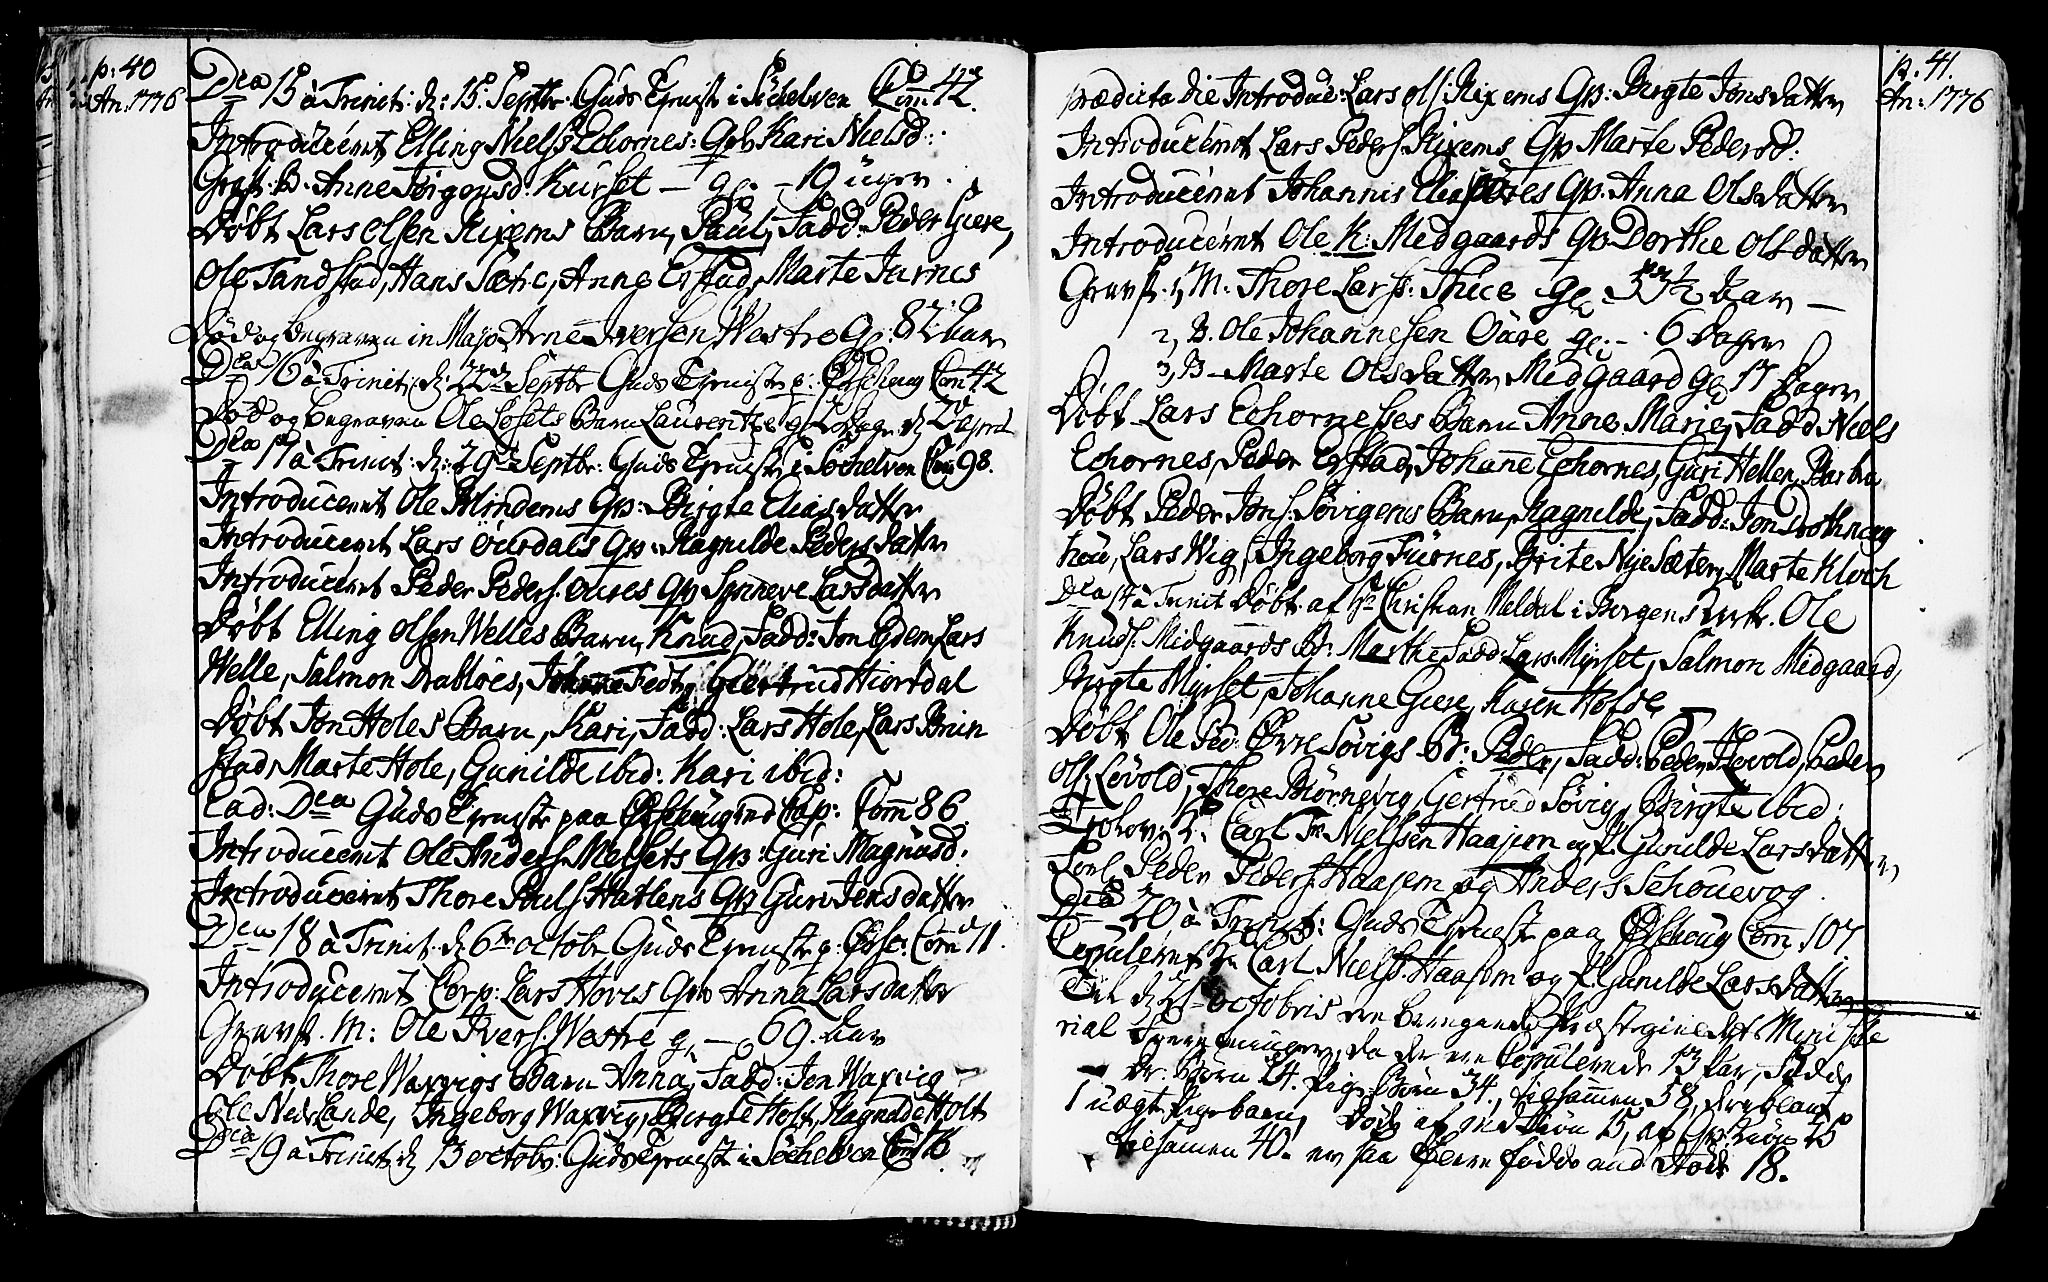 p: 40
An: 1776
Dca 15 à Trinit: d: 15. Septbr. Guds Tieneste i Söchelven Com 42.
Introduceret Elling Niels Echornes: Qv. Kari Nielsd:
Grafst. B. Anne Jörgensd: Kurset — gl. — 19 uger.
Döbt Lars Olsen Rixems Barn, Paul, Fadd: Peder Giere,
Ole Tandstad, Hans Sætre, Anne Erstad, Marte Furnes
Död og begraven in Majo Arne Iversen Westre gl: 82 Aar
Dca 16 à Trinit: d: 22de Septbr Guds Tieneste p: Ørschoug Com 42
Död og begraven Ole Losets Barn Laurentze gl. Dage d. April
Dca 17 à Trinit: d: 29de Septbr: Guds Tieneste i Söchelven Com 98.
Introduceret Ole Blindems Qv: Birgte Elias datter
Introduceret Lars Öurdals Qv: Ragnilde Peders datter
Introduceret Peder Peders. Oures Qv Synneve Larsdatter
Döbt Elling Olsen Welles Barn, Knud, Fadd: Jon Edem, Lars
Welle, Salmon Drabløes, Johanne Fedt, Giertrud Hiortdal
Döbt Jon Holes Barn, Kari, Fadd: Lars Hole, Lars Brun
stad, Marte Hole, Gunilde ibid: Kari ibid:
Ead: Dca Guds Tieneste paa Ørschoug ved Cap: Com 86.
Introduceret Ole Anders. Melsets Qv: Guri Magnusd:
Introduceret Thore Pouls Hatlens Qv Guri Jensdatter
Dca 18 à Trinit. d. 6te octobr Guds Tieneste p: Ørsc: Com 71.
Introduceret Corp: Lars Hoves Qv Anna Larsdatter
Gravst. M: Ole Ivers. Westre g. — 69. Aar
Döbt Thore Waxvigs Barn Anna, Fadd: Jon Waxvig
Ole NedreLande, Ingeborg Waxvig, Birgte Holt, Ragnilde Holt
Dca 19 à Trinit d. 13 octobr: Guds Tieneste i Söchelven Com
p. 41.
An: 1776
prædicta die Introduc: Lars Ols. Rixems Qv: Birgte Jonsdatter
Introduceret Lars Peders. Rixems Qv Marte Pedersd:
Introduceret Johannis Elias Qv. Anna Olsdatter
Introduceret Ole K: Medgaards Qv Dorthe Olsdatter
Gravst. 1, M. Thore Larss: Thue gl. Aar —
2, B. Ole Johannesen Oure gl. – 6 Dager
3, B – Marte Olsdatter Midgaard gl 17 Dager
Döbt Lars Echornesses Barn Anne Marie, Fadd Niels
Echornes, Peder Erstad, Johane Echornes, Guri Hellen, Barbra
Döbt Peder Jons. Søvigens Barn, Ragnilde, Fadd: Jon Drotning
hou, Lars Wig, Ingeborg Furnes, Brite Nyesæter, Marte Kloch
Dca à Trinit Döbt af Hr Christian Meldal i Borgens Kirke. Ole
Knuds. Midgaards B: Marthe Fadd. Lars Myrset, Salmon Midgaard,
Birgte Myrset, Johanne Giere, Karen Hofde
Döbt Ole Ped: Øvre Søvigs B: Peder, Fadd: Peder Hovold, Peder
Ols. Løvold, Thore Biørnevig, Gertrud Søvig, Birgte ibid:
Trolov: H. Carl Fr. Nielsen Haajem og P. Gunilde Larsdatter,
Forl. Peder Peders. Haajem og Anders Schouevog.
Dca 20 à Trinit: Guds Tieneste paa Ørschoug Com. 107
Copuleret H. Carl Niels. Haajem og P. Gunilde Larsdatter
Til d. 21 octobris ere Præstegieldet
rial da der ere Copulerede 13 Par, Fødde
Dr: Børn 24. Pige Børn 34, tilsammen 58, deriblant
1 uægte Pigebarn, Døde af M. Kiøn 15, af Qv: Kiøn 25
tilsamen 40. er saa flere fødde end døde 18.